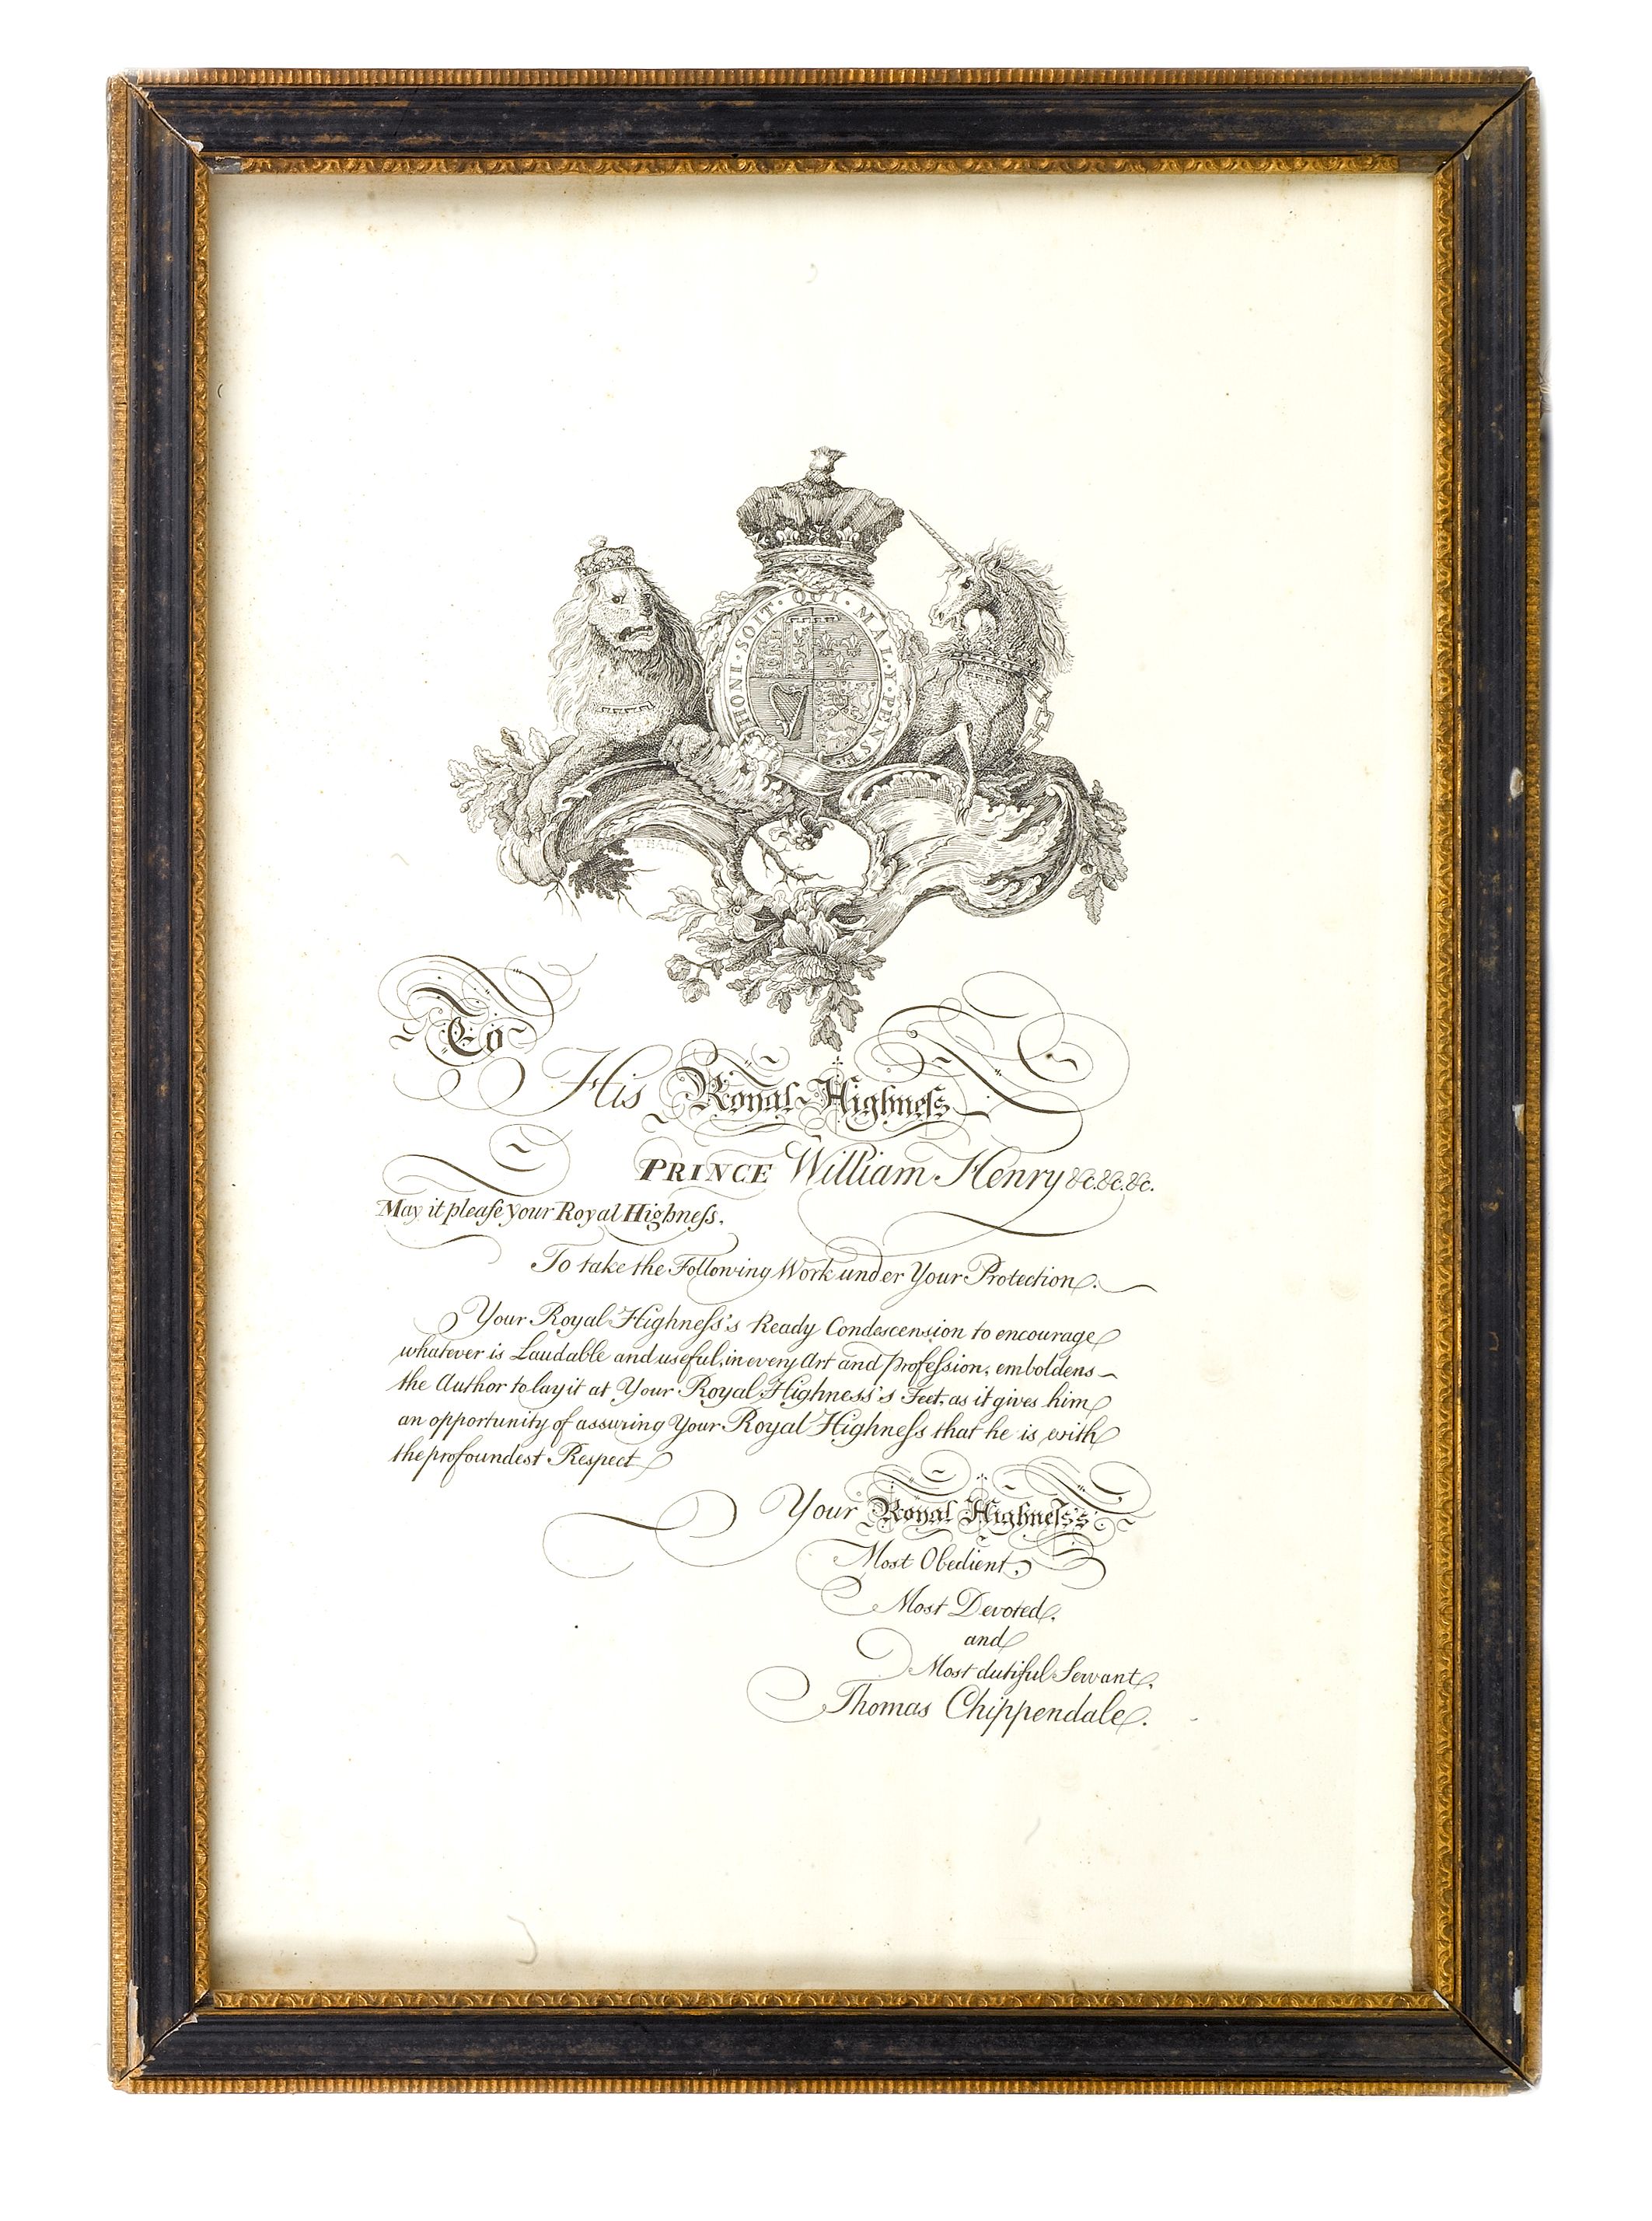 HONI · SOIT · QUI · MAL · Y · PENS
To
His Royal Highneſs
PRINCE William Henry &c.&c.&c.
May it pleaſe your Royal Highneſs.
To take the Following Work under Your Protection.
Your Royal Highneſs's Ready Condescension to encourage
whatever is Laudable and useful, in every Art and profeſsion, emboldens
the Author to lay it at Your Royal Highness's Feet, as it gives him
an opportunity of assuring Your Royal Highneſs that he is with
the profoundest Respect
Your Royal Highneſs's
Most Obedient,
Most Devoted,
and
Most dutiful Servant,
Thomas Chippendale.